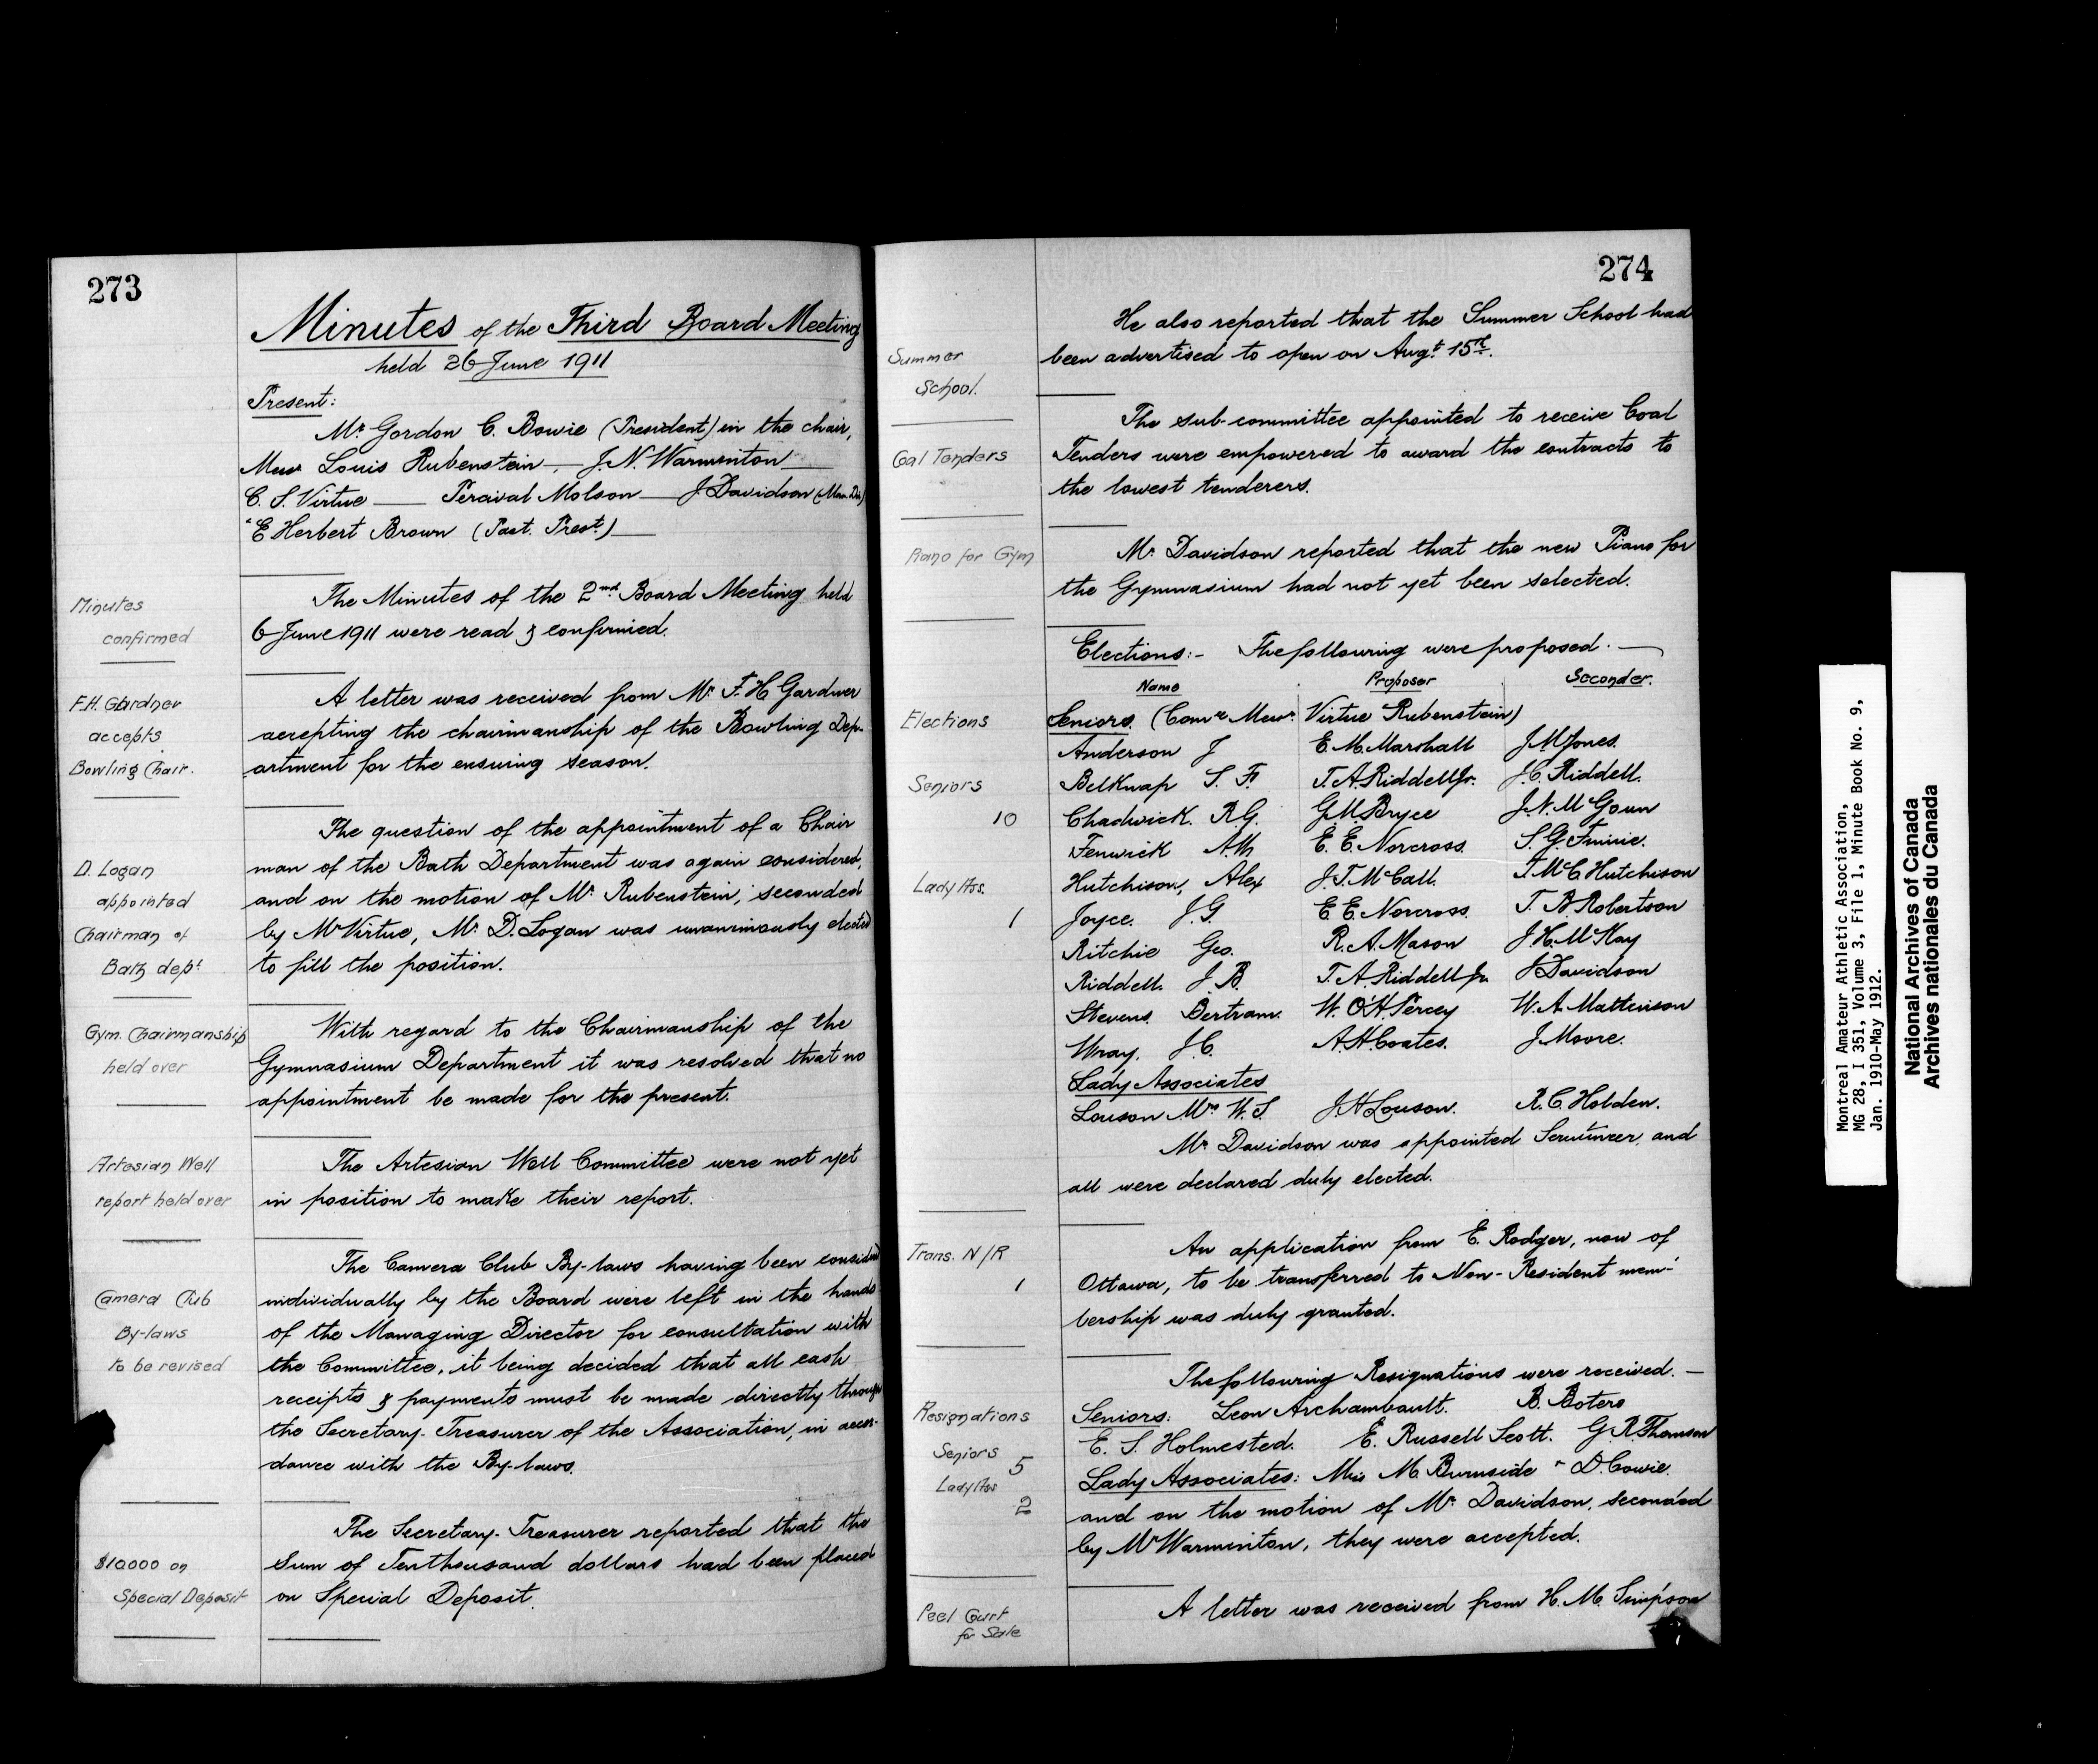 273
Minutes of the Third Board Meeting
held 26 June 1911
Present:
Mr. Gordon C. Bowie (President) in the chair,
Messrs Louis Rubenstein, — J.N. Warminton —
C. S. Virtue — Percival Molson — J Davidson (Man. Dir)
" E Herbert Brown (Past. Prest.) —
Minutes
confirmed
The Minutes of the 2nd Board Meeting held
6 June 1911 were read & confirmed.
F.H. Gardner
accepts
Bowling Chair.
A letter was received from Mr. F. H Gardner
accepting the chairmanship of the Bowling Dep-
artment for the ensuing season.
D. Logan
appointed
Chairman of
Bath dept
The question of the appointment of a Chair
man of the Bath Department was again considered,
and on the motion of Mr. Rubenstein, seconded
by Mr Virtue, Mr. D. Logan was unanimously elected
to fill the position.
Gym. Chairmanship
held over
With regard to the Chairmanship of the
Gymnasium Department it was resolved that no
appointment be made for the present.
Artesian Well
report held over
The Artesian Well Committee were not yet
in position to make their report.
Camera Club
By-laws
to be revised
The Camera Club By-laws having been considered
individually by the Board were left in the hands
of the Managing Director for consultation with
the Committee, it being decided that all cash
receipts & payments must be made directly through
the Secretary-Treasurer of the Association, in accor-
dance with the By-laws.
$10000 on
Special Deposit
The Secretary-Treasurer reported that the
Sum of Ten thousand dollars had been placed
on Special Deposit.
274
Summer
School.
He also reported that the Summer School had
been advertised to open on Augt. 15th.
Coal Tenders
The sub-committee appointed to receive Coal
Tenders were empowered to award the contracts to
the lowest tenderers.
Piano for Gym
Mr. Davidson reported that the new Piano for
the Gymnasium had not yet been selected.
Elections:- The following were proposed. —
Name Proposer Seconder.
Elections
Seniors. (Comee Messrs. Virtue Rubenstein)
Anderson J E. M. Marshall J. M Jones.
Seniors
10
Belknap S. F. T. A. Riddell Jr. J. C. Riddell.
Chadwick. R.G. G. M. Bryce J. N. McGoun
Fenwick A.M E. E. Norcross. S. G. Finnie.
Lady Ass.
1
Hutchison, Alex J. T. McCall. T McC Hutchison
Joyce. J. G. E. E. Norcross. T. B Robertson
Ritchie Geo. R. A. Mason J. H. McKay
Riddell. J. B. T. A. Riddell Jr. J Davidson
Stevens. Bertram. W. O'H. Percey W. A. Mattinson
Wray. J. C. A. H. Coates. J Moore.
Lady Associates
Louson Mrs W. S. J. H Louson. R. C. Holden.
Mr. Davidson was appointed Scrutineer, and
all were declared duly elected.
Trans. N/R
1
An application from E. Rodger, now of
Ottawa, to be transferred to Non-Resident mem-
bership was duly granted.
Resignations
Seniors
5
Lady Ass
2
The following Resignations were received. —
Seniors: Leon Archambault. B. Botero
E. S. Holmested. E. Russell Scott. G R. Thomson
Lady Associates: Miss M. Burnside " D. Cowie.
and on the motion of Mr. Davidson, seconded
by Mr Warminton, they were accepted.
Peel Court
for Sale
A letter was received from H. M. Simpson
Montreal Amateur Athletic Association,
MG 28, I 351, Volume 3, File 1, Minute Book No. 9,
Jan. 1910-May 1912.
National Archives of Canada
Archives nationales du Canada